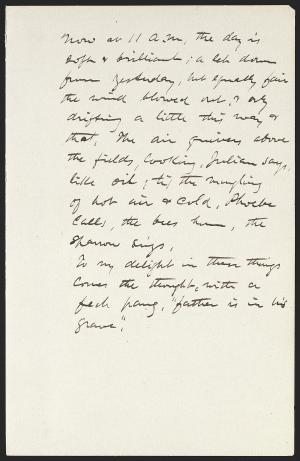 Now at 11 A.M, the day is
soft & brilliant; a let down
from yesterday, but equally fair
the wind blowed out, & only
drifting a little this way &
that. The air quivers above
the fields, looking, Julian says,
like oil; tis the mingling
of hot air & cold, Phoebe
calls, the bees hum, the
Sparrow sings,
To my delight in these things
comes the thought, with a
fresh pang, "father is in his
grave".